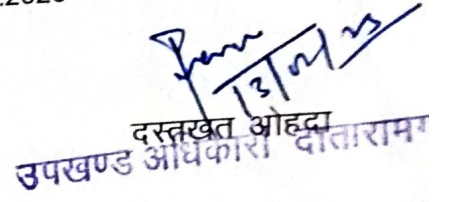 13/02/23
दस्तखत ओहदा
उपखण्ड अधिकारी दांतारामग